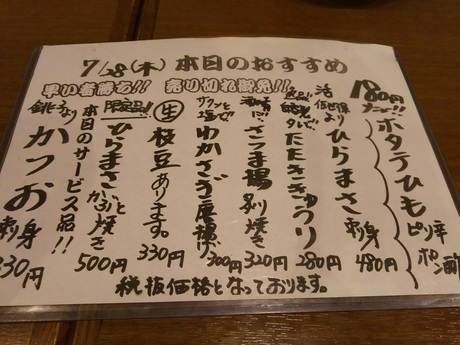 7/28(木) 本日のおすすめ
早い者勝ち!! 売り切れ御免!!
180円
ホタテひも ピリ辛 ポン酢
活
ひらまさ 刺身 480円
たたききゅうり 280円
酒の肴に!!
さつま揚 炙り焼き 320円
サクッと 塩で!!
わかさぎ唐揚 300円
生 枝豆あります。 330円
限定品!!
ひらまさ かぶと 焼き 500円
本日のサービス品!!
銚子より
かつお 刺身 330円
税抜価格となっております。